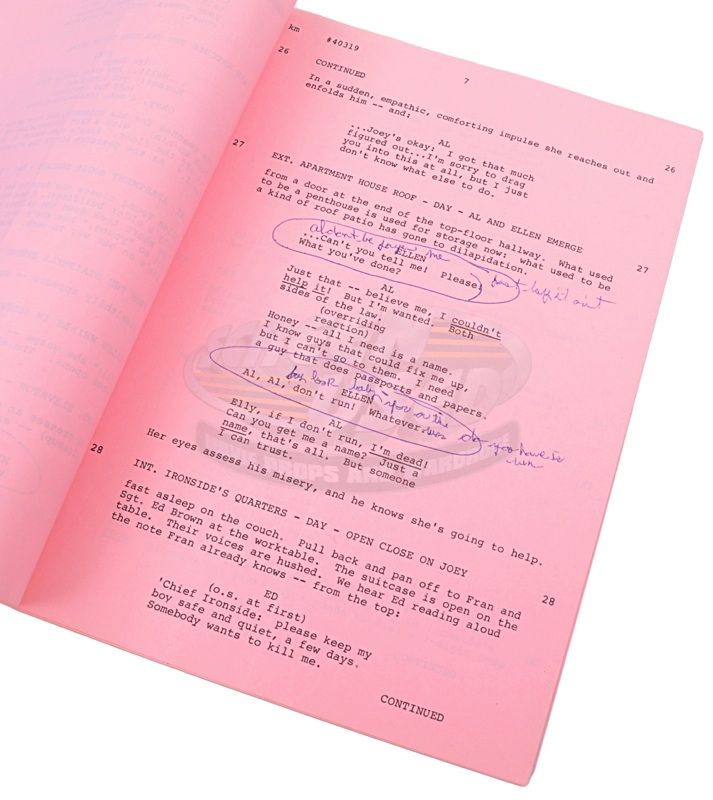 km #40319
7
26 CONTINUED 26
In a sudden, empathic, comforting impulse she reaches out and
enfolds him -- and:
AL
...Joey's okay: I got that much
figured out...I'm sorry to drag
you into this at all, but I just
don't know what else to do.
27 EXT. APARTMENT HOUSE ROOF - DAY - AL AND ELLEN EMERGE 27
from a door at the end of the top-floor hallway. What used
to be a penthouse is used for storage now: what used to be
a kind of roof patio has gone to dilapidation.
ELLEN
...Can't you tell me! Please,
What you've done?
AL
Just that -- believe me, I couldn't
help it! But I'm wanted. Both
sides of the law.
(overriding
reaction)
Honey -- all I need is a name.
I know guys that could fix me up,
but I can't go to them. I need
a guy that does passports and papers.
look baby
ELLEN
Al, Al, don't run! Whatever
you have to
run
AL
Elly, if I don't run, I'm dead!
Can you get me a name? Just a
name, that's all. But someone
I can trust.
Her eyes assess his misery, and he knows she's going to help.
28 INT. IRONSIDE'S QUARTERS - DAY - OPEN CLOSE ON JOEY 28
fast asleep on the couch. Pull back and pan off to Fran and
Sgt. Ed Brown at the worktable. The suitcase is open on the
table. Their voices are hushed. We hear Ed reading aloud
the note Fran already knows -- from the top:
ED
(o.s. at first)
'Chief Ironside: please keep my
boy safe and quiet, a few days.
Somebody wants to kill me.
CONTINUED